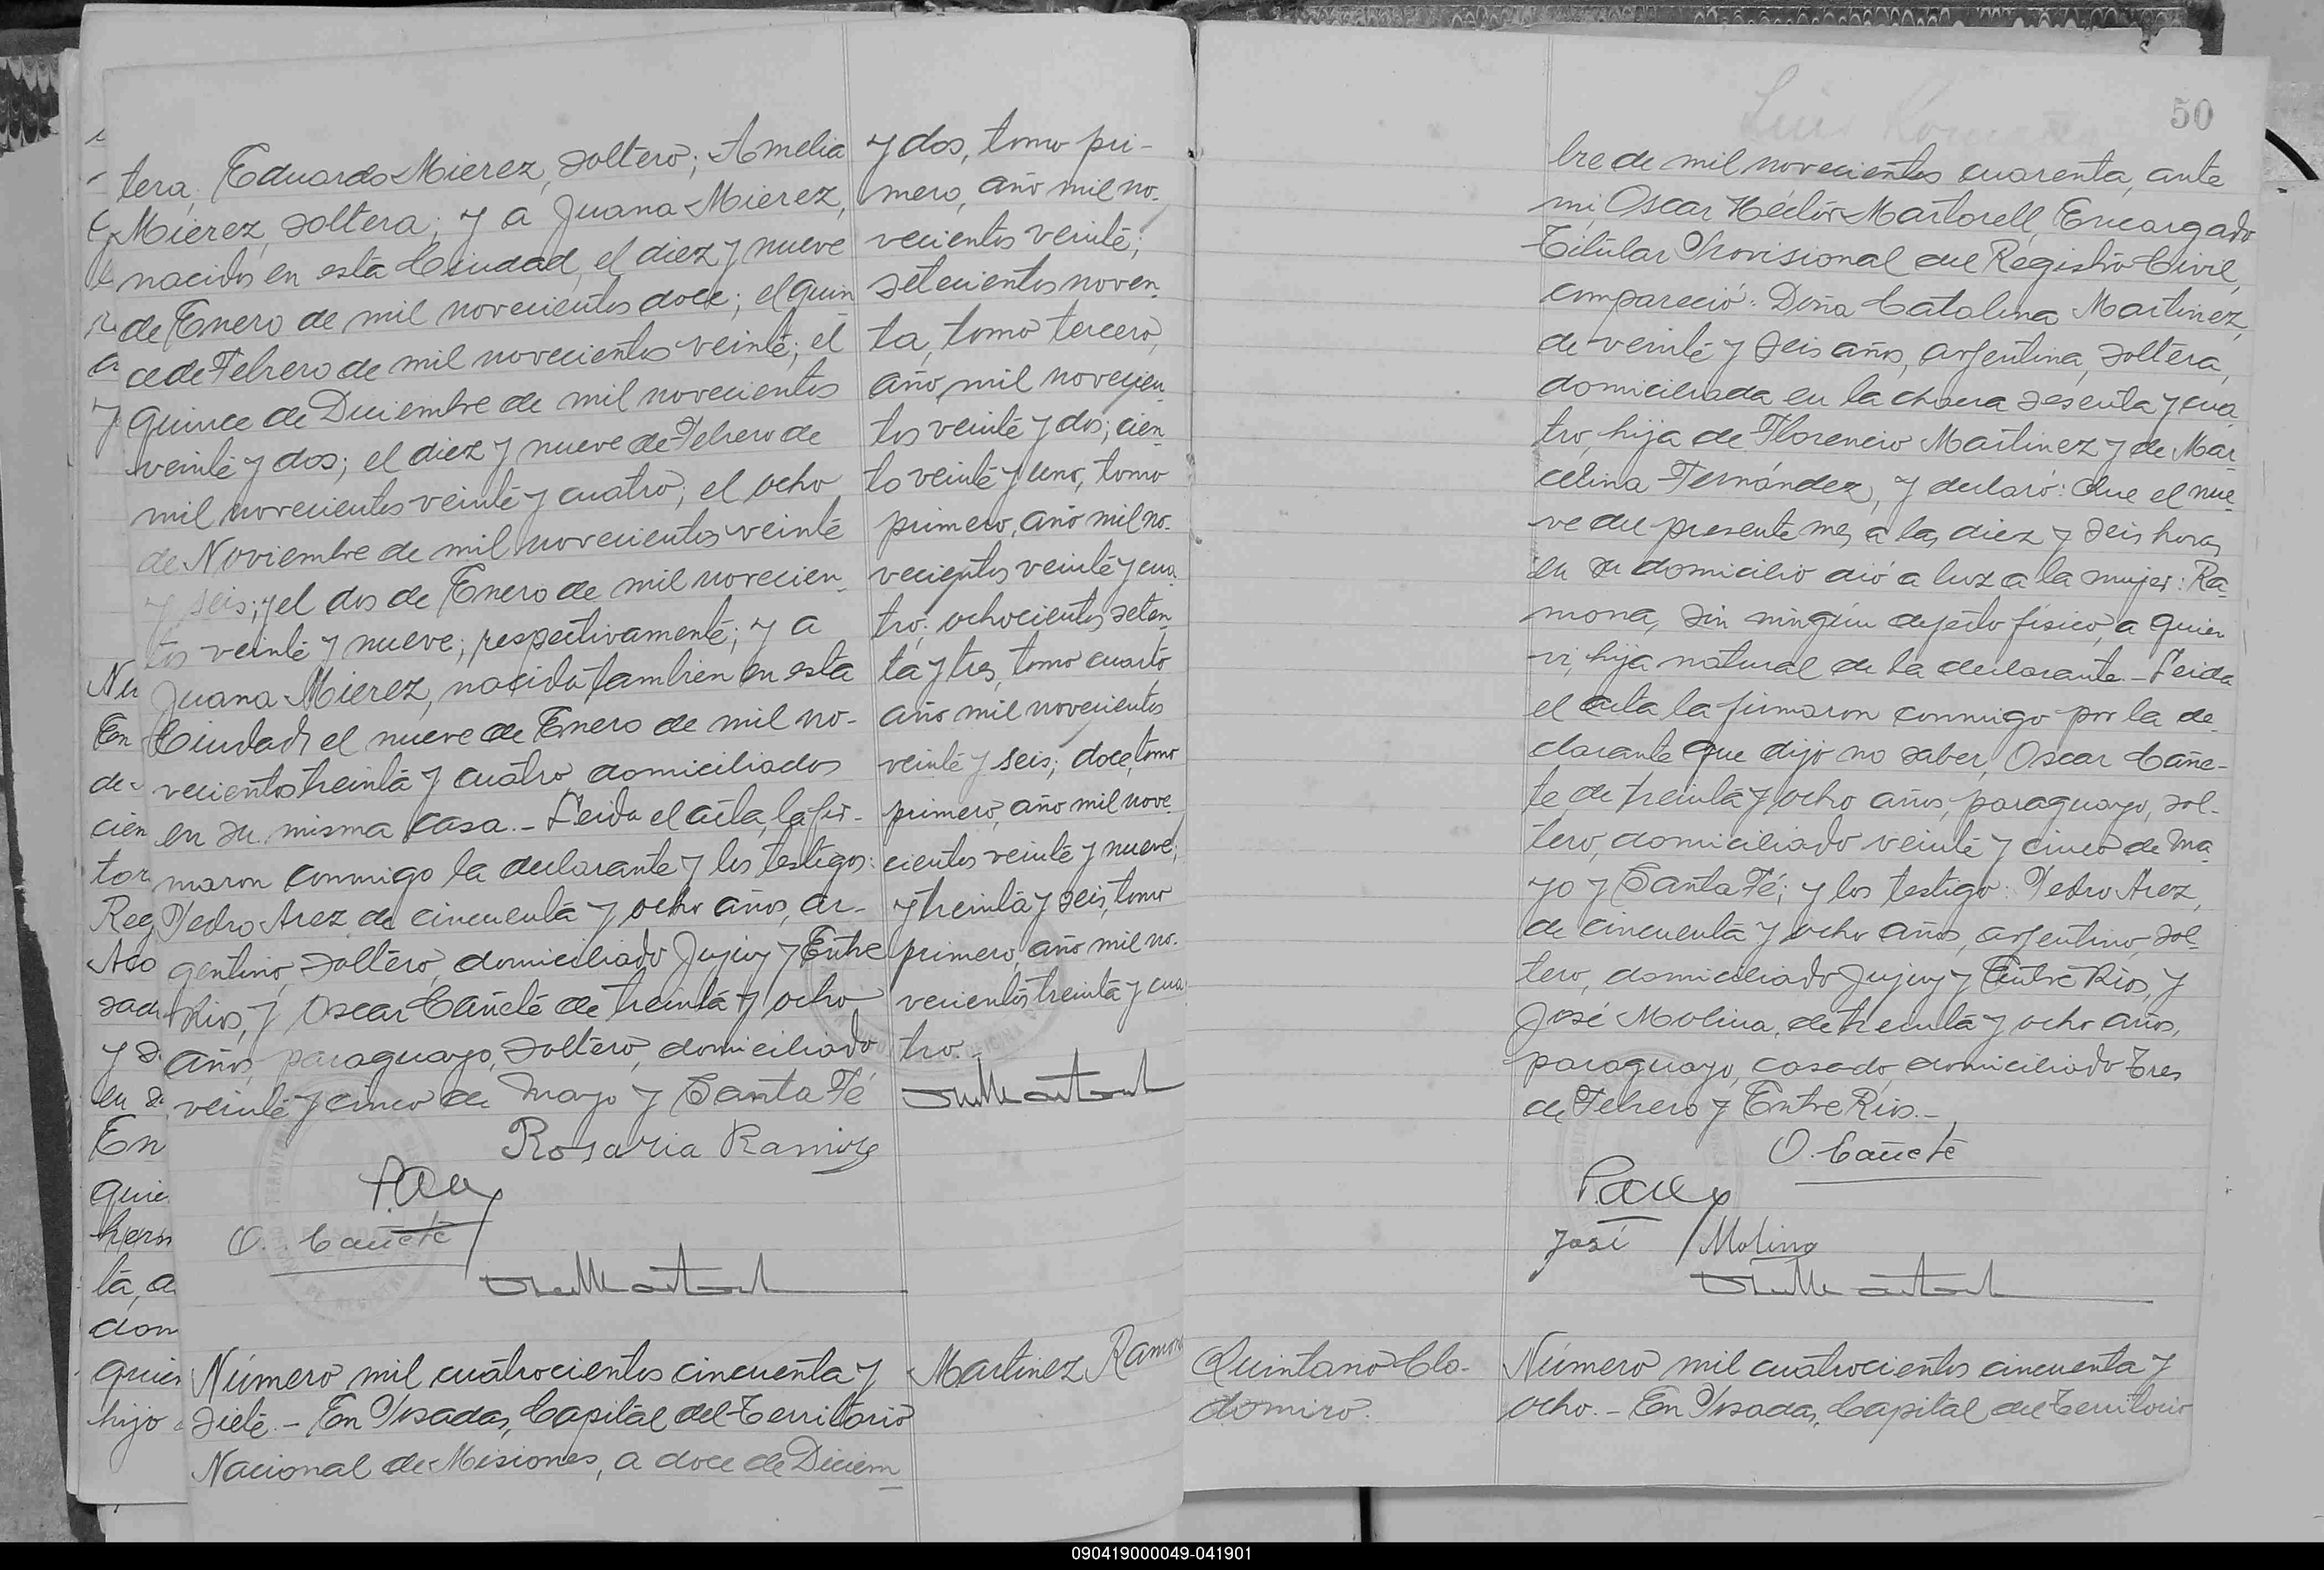 tera, Eduardo Mierez, soltero; Amelia
Mierez, soltera; y a Juana Mierez,
nacidos en esta Ciudad, el diez y nueve
de Enero de mil novecientos doce; el quin
ce de Febrero de mil novecientos veinte; el
quince de Diciembre de mil novecientos
veinte y dos; el diez y nueve de Febrero de
mil novecientos veinte y cuatro; el ocho
de Noviembre de mil novecientos veinte
y seis; y el dos de Enero de mil novecien-
tos veinte y nueve; respectivamente; y a
Juana Mierez, nacida tambien en esta
Ciudad, el nueve de Enero de mil no-
vecientos treinta y cuatro, domiciliados
en su misma casa.- Leida el acta, la fir-
maron conmigo la declarante y los testigos:
Pedro Arez de cincuenta y ocho años, ar-
gentino, soltero, domiciliado Jujuy y Entre
Rios, y Oscar Cañete de treinta y ocho
años, paraguayo, soltero, domiciliado
veinte y cinco de Mayo y Santa Fé
Rosaria Ramirez
O. Cañete
Número mil cuatrocientos cincuenta y
siete.- En Posadas, Capital del Territorio
Nacional de Misiones, a doce de Diciem
y dos, tomo pri-
mero, año mil no-
vecientos veinte;
setecientos noven-
ta, tomo tercero,
año mil novecien-
tos veinte y dos; cien-
to veinte y uno, tomo
primero, año mil no-
vecientos veinte y cua-
tro; ochocientos seten-
ta y tres, tomo cuarto,
año mil novecientos
veinte y seis; doce, tomo
primero, año mil nove-
cientos veinte y nueve;
y treinta y seis, tomo
primero, año mil no-
vecientos treinta y cua
tro.-
Martinez Ramona
50
bre de mil novecientos cuarenta, ante
mi, Oscar Héctor Martorell, Encargado
Titular Provisional del Registro Civil,
compareció: Doña Catalina Martinez,
de veinte y seis años, argentina, soltera,
domiciliada en la chacra sesenta y cua
tro, hija de Florencio Martinez y de Mar-
celina Fernández, y declaró: Que el nue-
ve del presente mes, a las diez y seis horas,
en su domicilio dió a luz a la mujer: Ra-
mona, sin ningún defecto físico, a quien
vi, hija natural de la declarante.- Leida
el acta la firmaron conmigo por la de-
clarante que dijo no saber, Oscar Cañe-
te, de treinta y ocho años, paraguayo, sol-
tero, domiciliado veinte y cinco de Ma-
yo y Santa Fé; y los testigo: Pedro Arez,
de cincuenta y ocho años, argentino, sol-
tero, domiciliado Jujuy y Entre Rios, y
José Molina, de treinta y ocho años,
paraguayo, casado, domiciliado Tres
de Febrero y Entre Rios.-
O. Cañete
José Molina
Quintano Clo-
domiro.
Número mil cuatrocientos cincuenta y
ocho.- En Posadas, Capital del Territorio
090419000049-041901